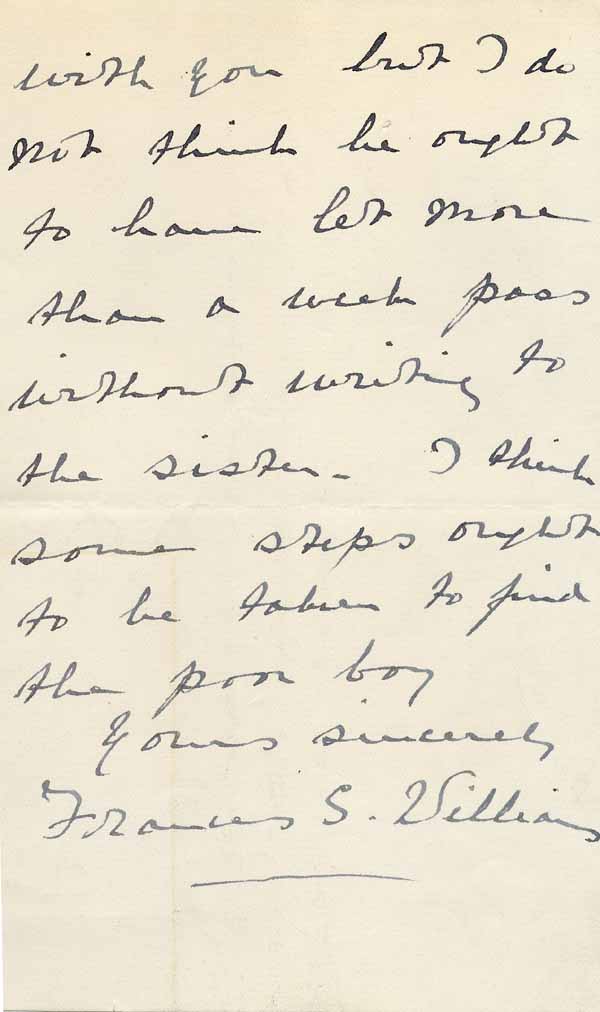 with you but I do
not think he ought
to have let more
than a week pass
without writing to
the sister. I think
some steps ought
to be taken to find
the poor boy
Yours sincerely
Frances S. Williams